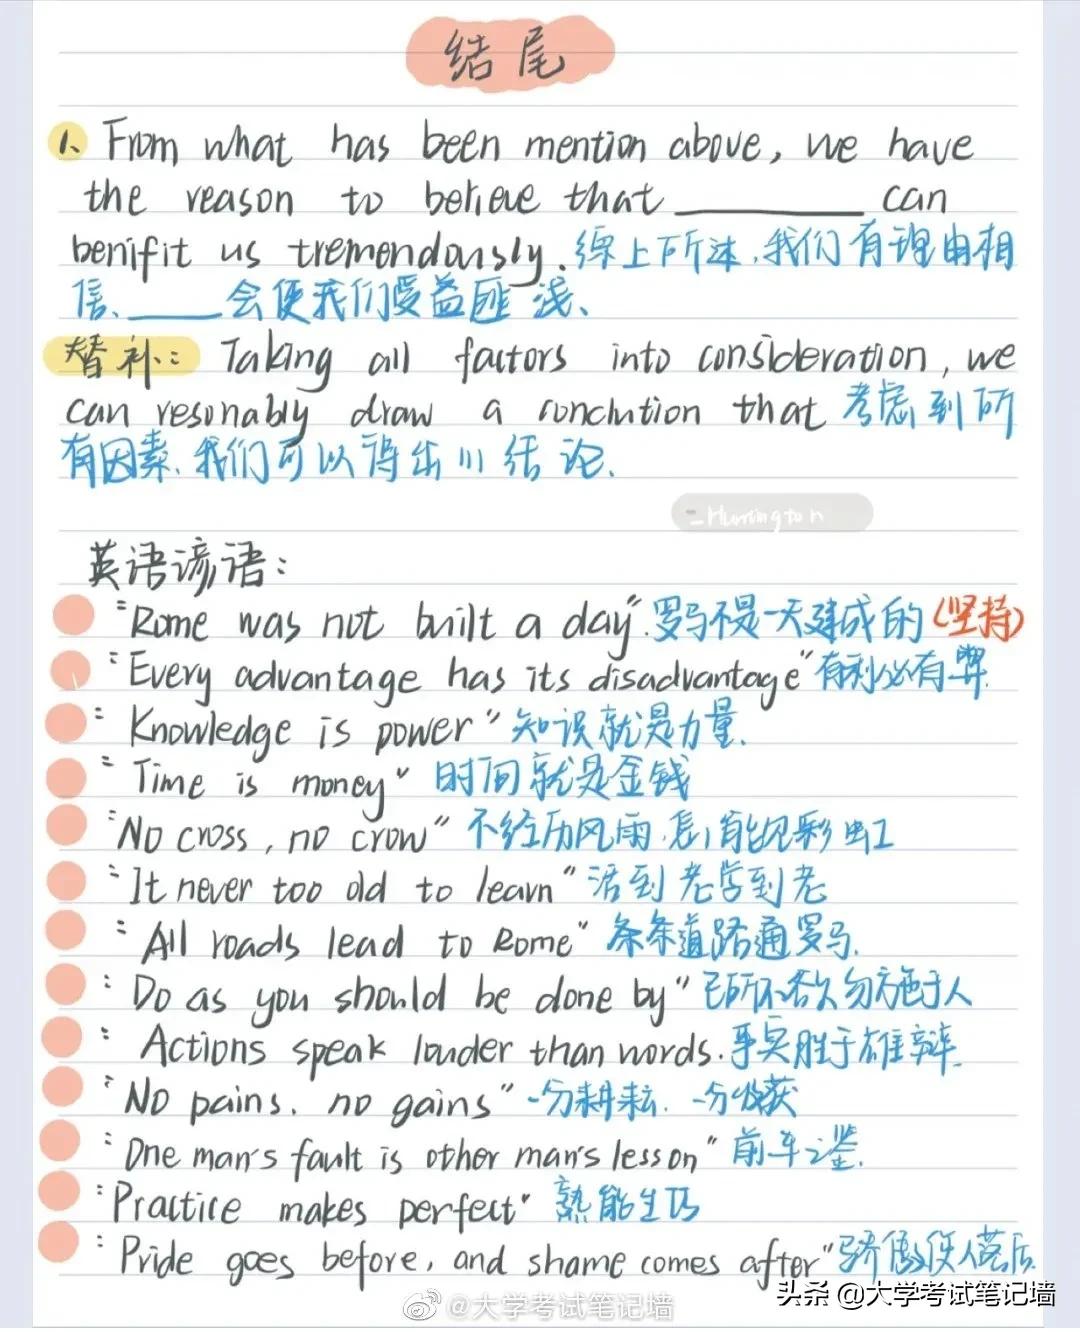 结尾
1、From what has been mention above, we have
the reason to believe that ________ can
benifit us tremendously. 综上所述,我们有理由相
信、____会使我们受益匪浅、
替补: Taking all factors into consideration, we
can resonably draw a conclution that 考虑到所
有因素,我们可以得出川结论.
-Huntington
英语谚语:
"Rome was not built a day". 罗马不是一天建成的 (坚持)
"Every advantage has its disadvantage" 有利必有弊.
"Knowledge is power" 知识就是力量.
"Time is money" 时间就是金钱
"No cross, no crow" 不经历风雨,怎能见彩虹
"It never too old to learn" 活到老学到老
"All roads lead to Rome" 条条道路通罗马.
"Do as you should be done by" 己所不欲勿施于人
"Actions speak louder than words. 事实胜于雄辩.
"No pains. no gains" 一分耕耘. 一分收获
"One man's fault is other man's lesson" 前车之鉴.
"Practice makes perfect" 熟能生巧
"Pride goes before, and shame comes after" 骄傲使人落后.
@大学考试笔记墙
头条 @大学考试笔记墙